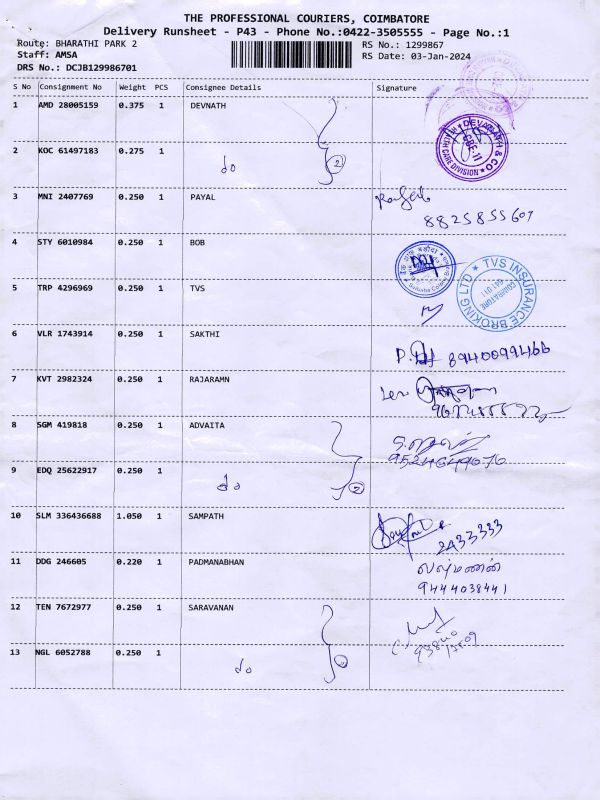 THE PROFESSIONAL COURIERS, COIMBATORE
Delivery Runsheet - P43 - Phone No.:0422-3505555 - Page No.:1
Route: BHARATHI PARK 2 RS No.: 1299867
Staff: AMSA RS Date: 03-Jan-2024
DRS No.: DCJB129986701
S No Consignment No Weight PCS Consignee Details Signature
1 AMD 28005159 0.375 1 DEVNATH
DEVANATH & CO
CARE DIVISION
CBE-11
2 KOC 61497183 0.275 1 do 2
3 MNI 2407769 0.250 1 PAYAL
8825855607
4 STY 6010984 0.250 1 BOB
5 TRP 4296969 0.250 1 TVS
TVS INSURANCE BROKING LTD
COIMBATORE
641 011
6 VLR 1743914 0.250 1 SAKTHI
8940099466
7 KVT 2982324 0.250 1 RAJARAMN
8 SGM 419818 0.250 1 ADVAITA
9524649070
9 EDQ 25622917 0.250 1 do 2
10 SLM 336436688 1.050 1 SAMPATH
2433333
11 DDG 246605 0.220 1 PADMANABHAN
9444038441
12 TEN 7672977 0.250 1 SARAVANAN
13 NGL 6052788 0.250 1 do 2